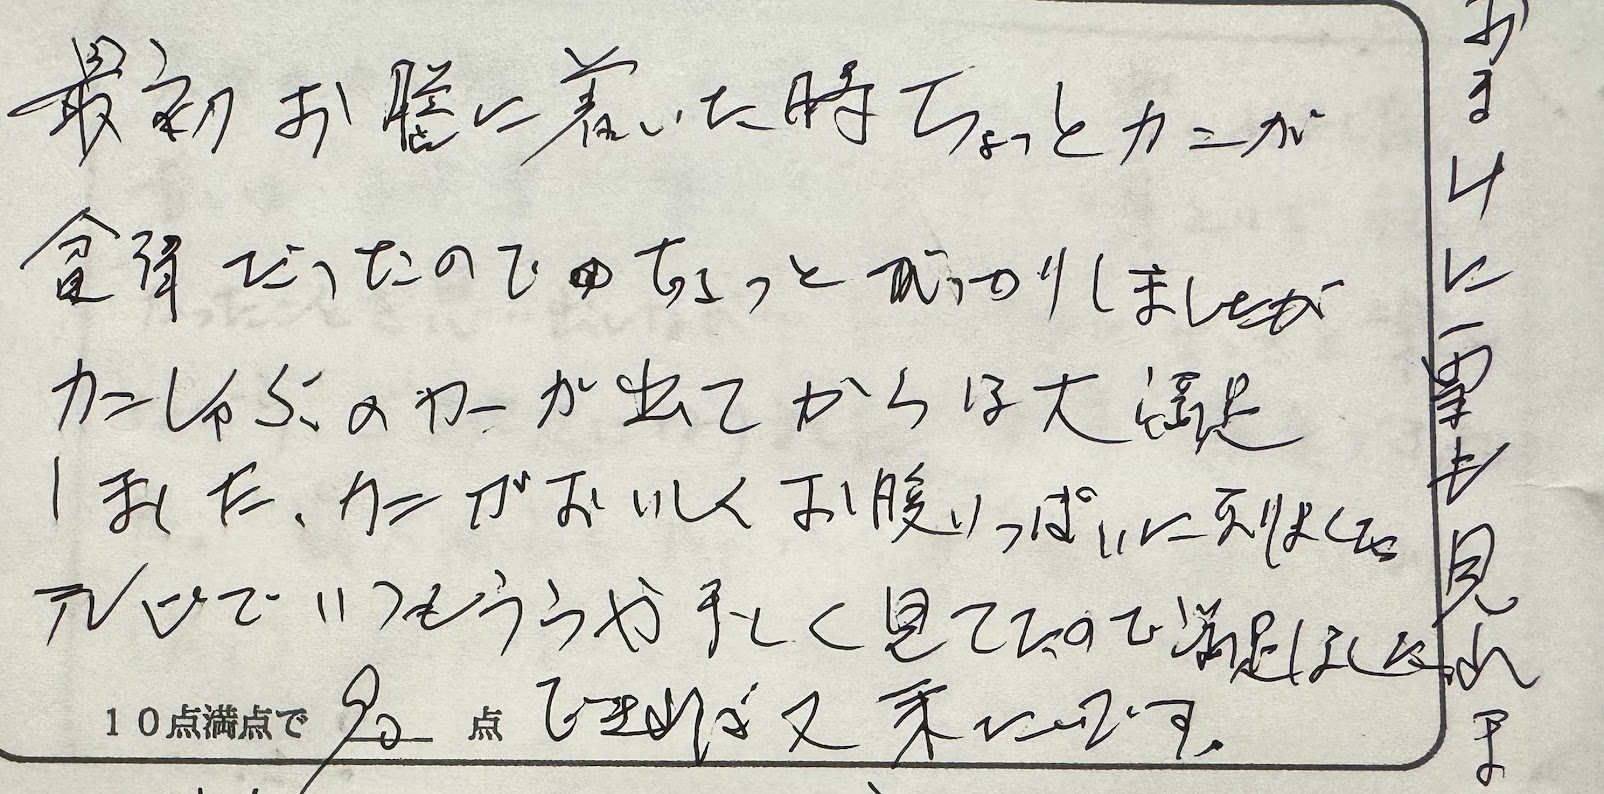 最初お膳に着いた時ちょっとカニが
貧弱だったのでちょっとがっかりしましたが
カニしゃぶのカニが出てからは大満足
しました、カニがおいしくお腹いっぱいに
テレビでいつもうらやましく見てたので満足しました
10点満点で 点 できれば又来たいです。
おまけに雪も見れま